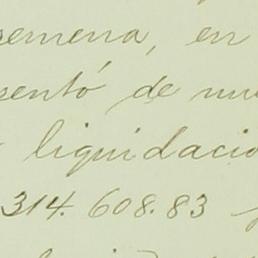 semena, en
sentó de nu
liquidacio
314. 608.83 y